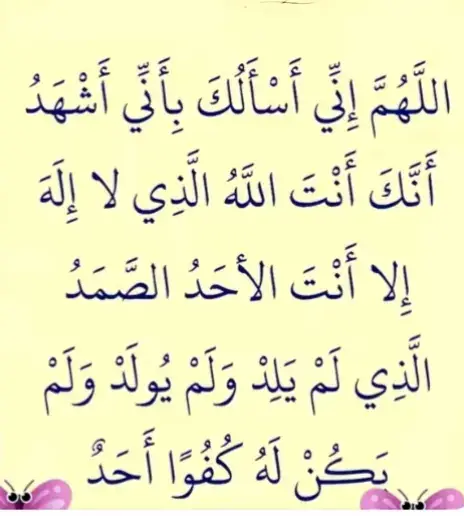 اللَّهُمَّ إِنِّي أَسْأَلُكَ بِأَنِّي أَشْهَدُ
أَنَّكَ أَنْتَ اللَّهُ الَّذِي لا إِلَهَ
إِلا أَنْتَ الأحَدُ الصَّمَدُ
الَّذِي لَمْ يَلِدْ وَلَمْ يُولَدْ وَلَمْ
يَكُنْ لَهُ كُفُوًا أَحَدٌ